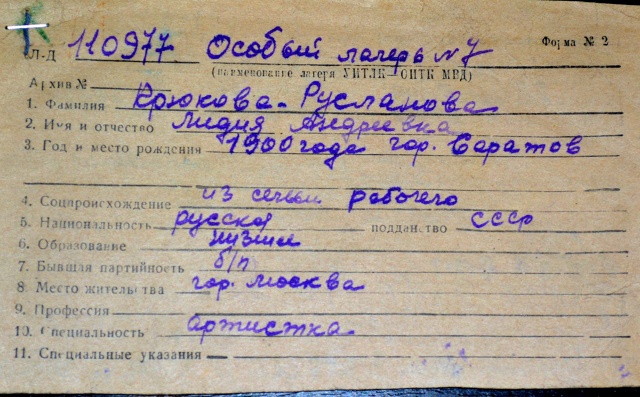 Форма № 2
Л-Д 110977. Особый лагерь №7
(наименование лагеря УИТЛК—ОИТК МВД)
Архив №
1. Фамилия Крюкова-Русланова
2. Имя и отчество Лидия Андреевка
3. Год и место рождения 1900 года гор. Саратов
4. Соцпроисхождение из семьи рабочего
5. Национальность русская подданство СССР
6. Образование низшее
7. Бывшая партийность б/п
8. Место жительства гор. Москва
9. Профессия
10. Специальность артистка
11. Специальные указания —